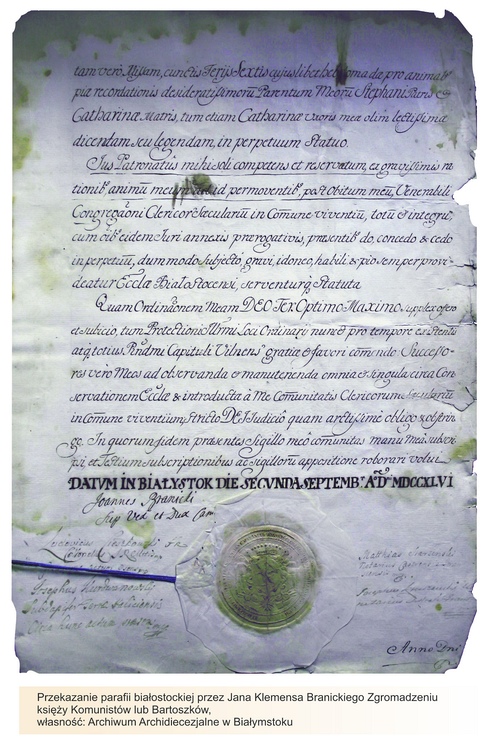 tam vero Missam, cunctis Ferijs Sextis cujuslibet hebdomadæ pro animab9
piæ recordationis desideratissimorũ Parentum Meorũ Stephani Patris &
Catharinæ Matris, tum etiam Catharinæ Uxoris meæ olim lectissimæ
dicendam seu legendam, in perpetuum Statuo.
Jus Patronatus mihi soli competens et reservatum, ex gravissimis ra
tionib9 animũ meum permoventib9, post obitum meũ, Venerabili
Congregaõni Clericor Sæcularium in Comune viventiũ, totũ & integrũ,
cum oib9 eidem Juri annexis prærogativis, præsentib9 do, concedo & cedo
in perpetuũ, dummodo Subjecto, gravi, idoneo, habili & pio semper provi-
deatur Ecclæ Białostocensi, serventurq Statuta
Quam Ordinãonem Meam DEO Ter Optimo Maximo supplex offero
et subicio, tum Protectioni Loci Ordinarij nunc & pro tempore existentis
atq totius Rndmi Capituli Vilnens gratiæ & favori comendo Successo-
res vero Meos ad observanda et manutenenda omnia et singula circa Con
servationem Ecclæ & introductæ à Me Comunitatis Clericorum Sæcularium
in Comune viventium, stricto DEI Judicio quam arctissime obligo & obstrin-
go. In quorum fidem præsentes Sigillo meo comunitas manu Mea subscri-
psi et Testium subscriptionibus ac sigillorũ appositione roborari volui
DATUM IN BIAŁYSTOK DIE SECUNDA SEPTEMB. A.D. MDCCXLVI
Joannes Branicki
Sup Dux Cam
Anno Dni
Przekazanie parafii białostockiej przez Jana Klemensa Branickiego Zgromadzeniu
księży Komunistów lub Bartoszków,
własność: Archiwum Archidiecezjalne w Białymstoku